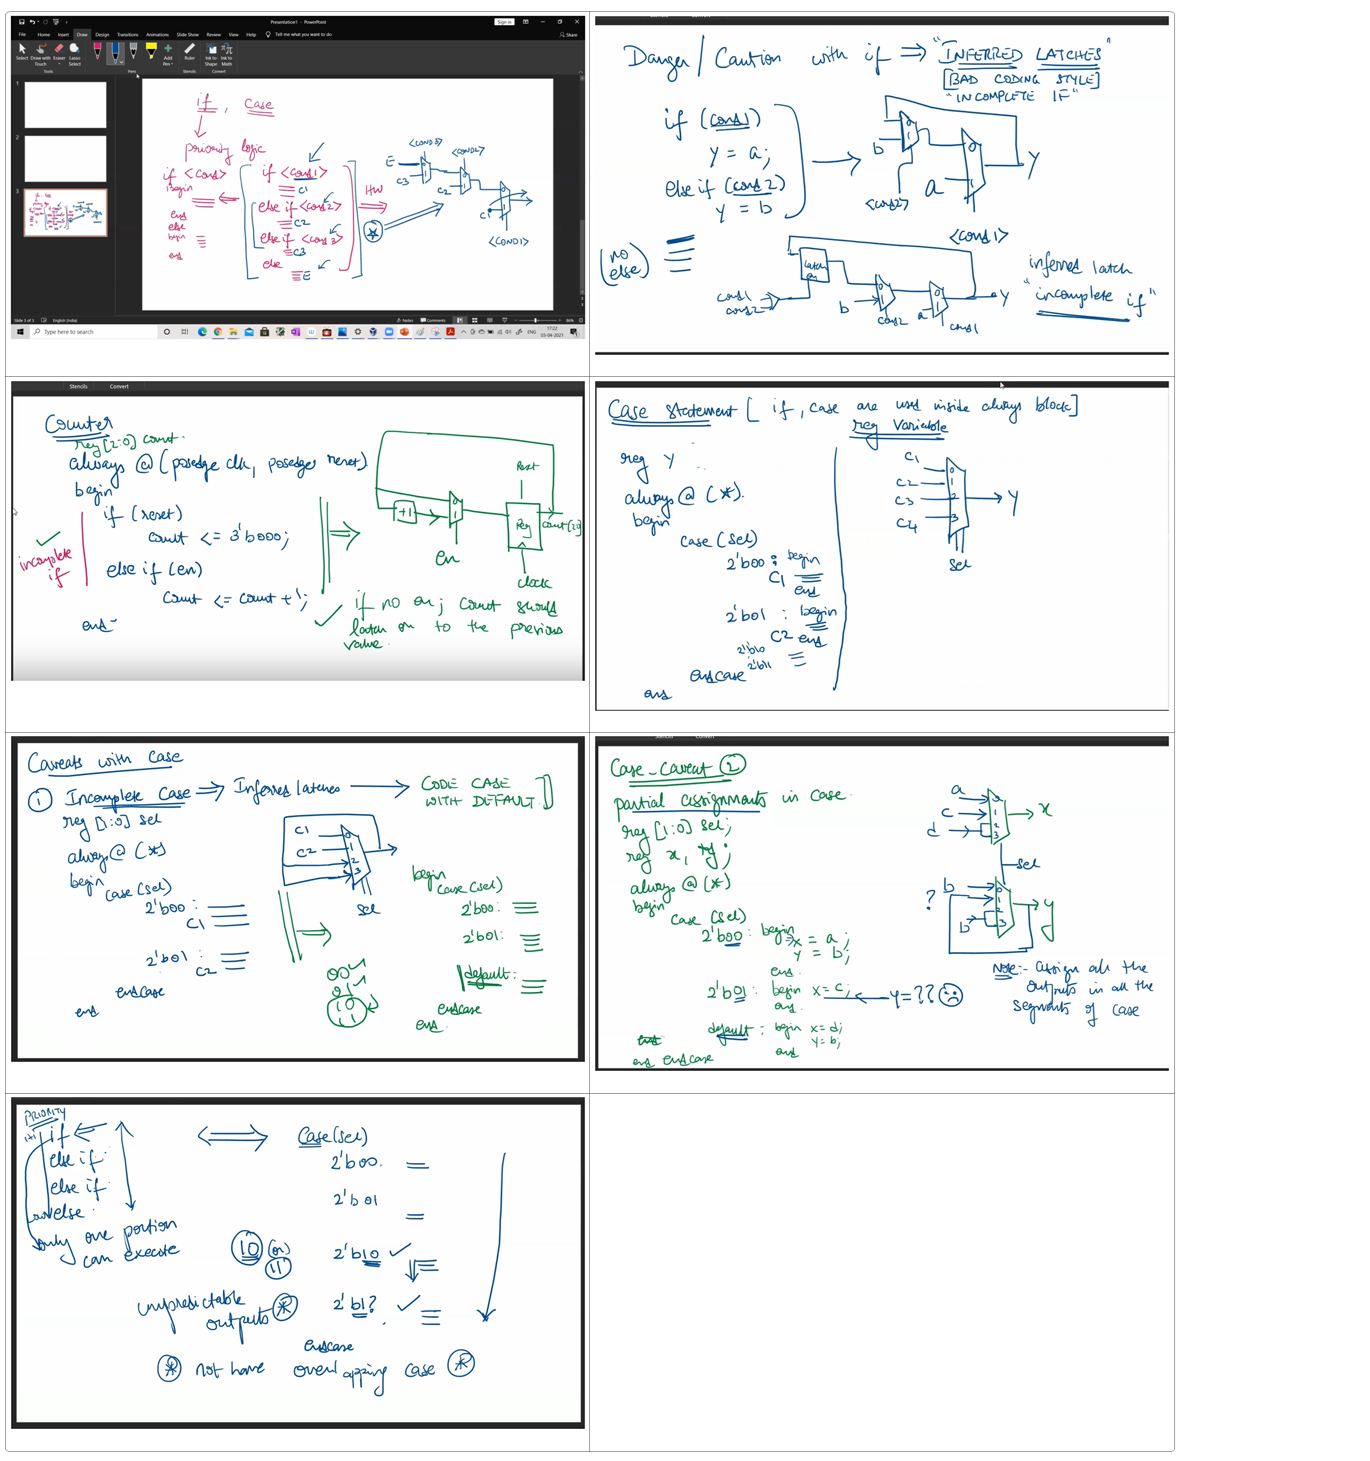 Presentation1 - PowerPoint
Sign in
File Home Insert Draw Design Transitions Animations Slide Show Review View Help Tell me what you want to do
Share
Select Draw with Touch Eraser Lasso Select Add Pen Ruler Ink to Shape Ink to Math
Tools Pens Stencils Convert
1
2
3
if, Case
priority logic
if <cond>
begin
end
else
begin
end
if <cond1>
C1
else if <cond2>
C2
else if <cond3>
C3
else
E
HW
<COND3>
<COND2>
E
C3
C2
C1
<COND1>
Notes Comments
Type here to search
ENG
17:22
03-04-2021
Danger / Caution with if ⇒ "INFERRED LATCHES"
[BAD CODING STYLE]
"INCOMPLETE IF"
if (cond1)
y = a;
else if (cond2)
y = b
(no else)
b
a
Y
<cond2>
<cond1>
latch
en
cond1
cond2
b
cond2
a
cond1
Y
inferred latch
"incomplete if"
Stencils Convert
Counter
reg [2:0] count.
always @ (posedge clk, posedge reset)
begin
if (reset)
count <= 3'b000;
else if (en)
count <= count +1;
end
incomplete if
+1
0
1
en
Reset
Reg
count[2:0]
clock
if no en; count should
latch on to the previous
value.
Case Statement [ if, case are used inside always block]
reg variable
reg y
always @ (*).
begin
case (sel)
2'b00 : begin
C1
end
2'b01 : begin
C2 end
2'b10
2'b11
endcase
end
C1
C2
C3
C4
0
1
2
3
Y
sel
Caveats with Case
① Incomplete Case ⇒ Inferred latches → CODE CASE
WITH DEFAULT.
reg [1:0] sel
always @ (*)
begin
case (sel)
2'b00 :
C1
2'b01 :
C2
endcase
end
C1
C2
0
1
2
3
sel
00
01
10
11
begin
case (sel)
2'b00:
2'b01:
default:
endcase
end
Case-Caveat ②
partial assignments in case.
reg [1:0] sel;
reg x, y;
always @ (*)
begin
case (sel)
2'b00 : begin x = a;
y = b;
end.
2'b01 : begin x = c; ← y = ??
end
default : begin x = d;
y = b;
end
end endcase
a
c
d
0
1
2
3
x
sel
b
?
b
0
1
2
3
y
Note:- assign all the
outputs in all the
segments of case
PRIORITY
if
else if
else if
else
only one portion
can execute
Case(sel)
2'b00.
2'b01
10 (or) 11
2'b10
2'b1?
unpredictable
outputs
endcase
not have overlapping case